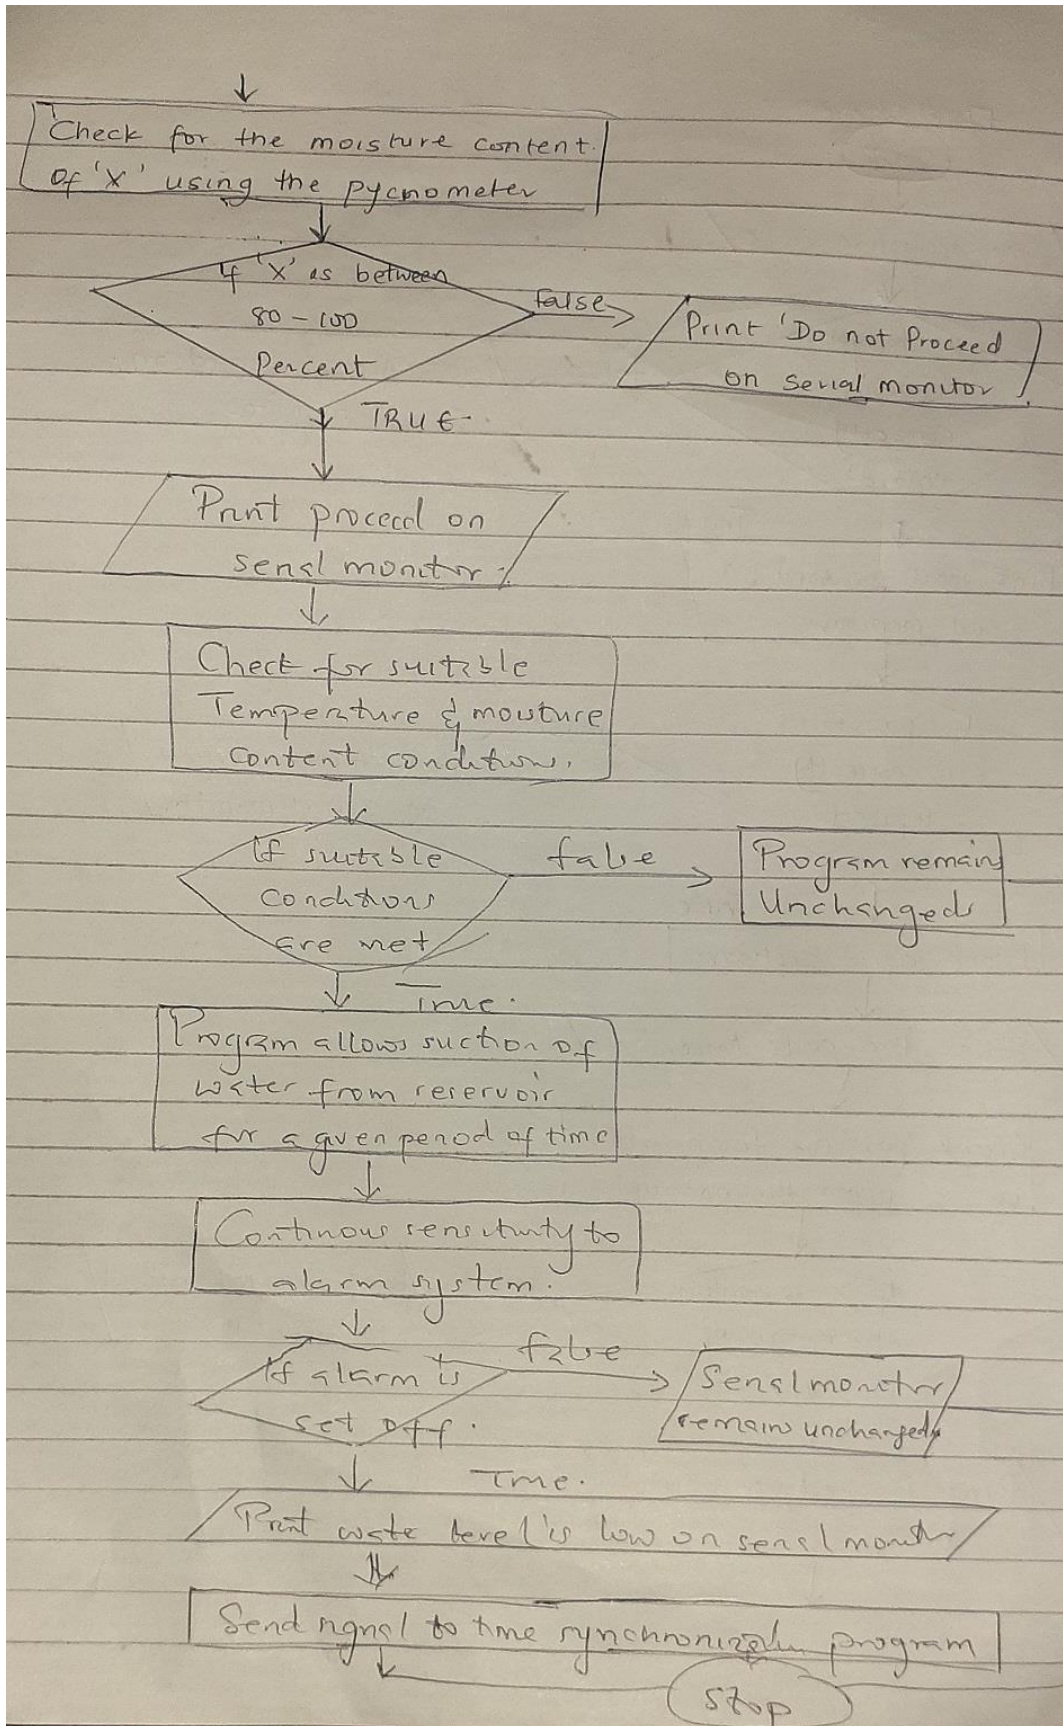 Check for the moisture content.
Of 'X' using the pycnometer
If 'X' is between
80 - 100
Percent
false
Print 'Do not Proceed
on serial monitor
TRUE
Print proceed on
serial monitor.
Check for suitable
Temperature & moisture
content conditions.
If suitable
conditions
are met
false
Program remains
Unchanged
True.
Program allows suction of
water from reservoir
for a given period of time
Continuous sensitivity to
alarm system.
If alarm is
set off.
false
Serial monitor
remains unchanged
True.
Print wate level is low on serial monitor
Send signal to time synchronization program
Stop